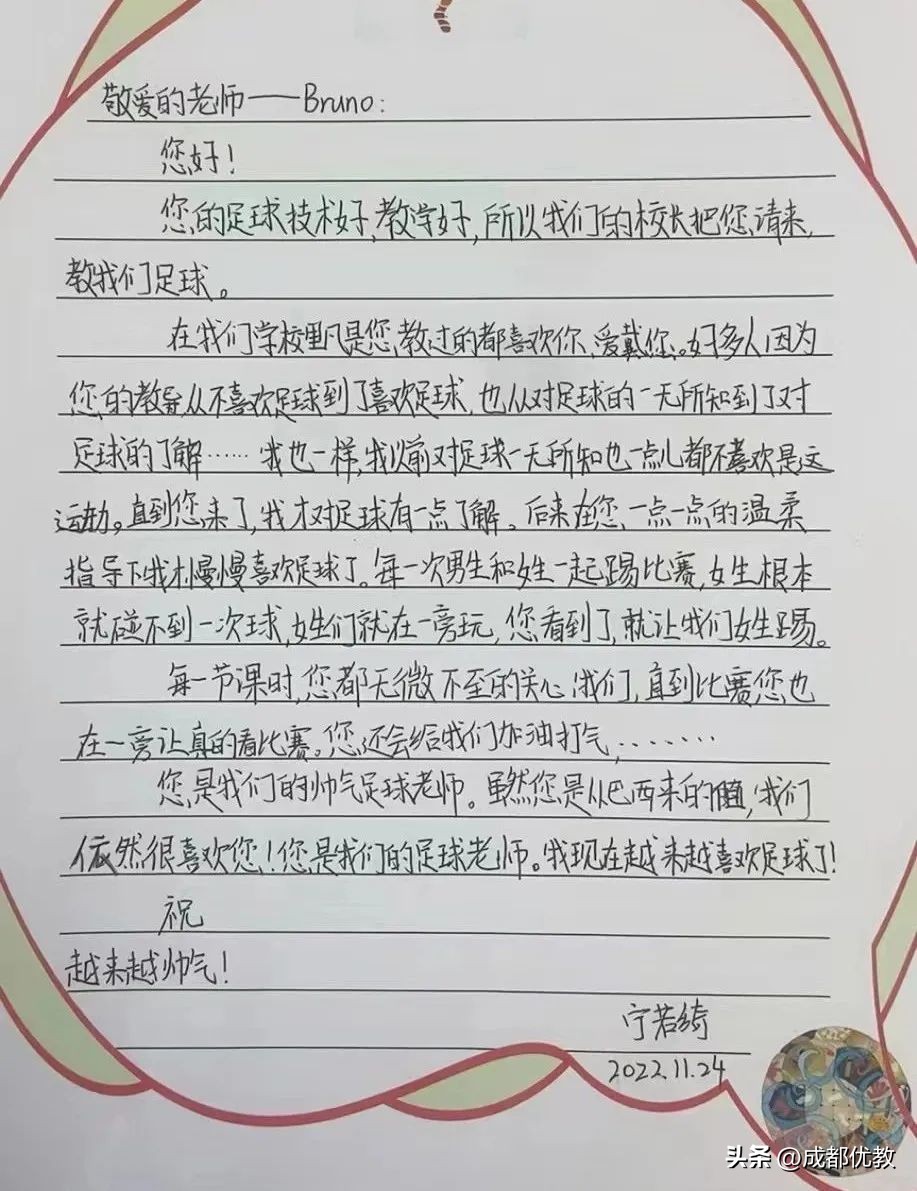 敬爱的老师——Bruno:
您好!
您的足球技术好,教学好,所以我们的校长把您请来,
教我们足球。
在我们学校里凡是您教过的都喜欢你,爱戴您。好多人因为
您的教导从不喜欢足球到了喜欢足球,也从对足球的一无所知到了对
足球的了解……我也一样,我以前对足球一无所知也一点儿都不喜欢是这
运动。直到您来了,我才对足球有一点了解。后来在您一点一点的温柔
指导下我才慢慢喜欢足球了。每一次男生和女生一起踢比赛,女生根本
就碰不到一次球,女生们就在一旁玩,您看到了,就让我们女生踢。
每一节课时,您都无微不至的关心我们,直到比赛您也
在一旁认真的看比赛。您还会给我们加油打气,……
您是我们的帅气足球老师。虽然您是从巴西来的,我们
依然很喜欢您!您是我们的足球老师。我现在越来越喜欢足球了!
祝
越来越帅气!
宁若绮
2022.11.24
头条 @成都优教